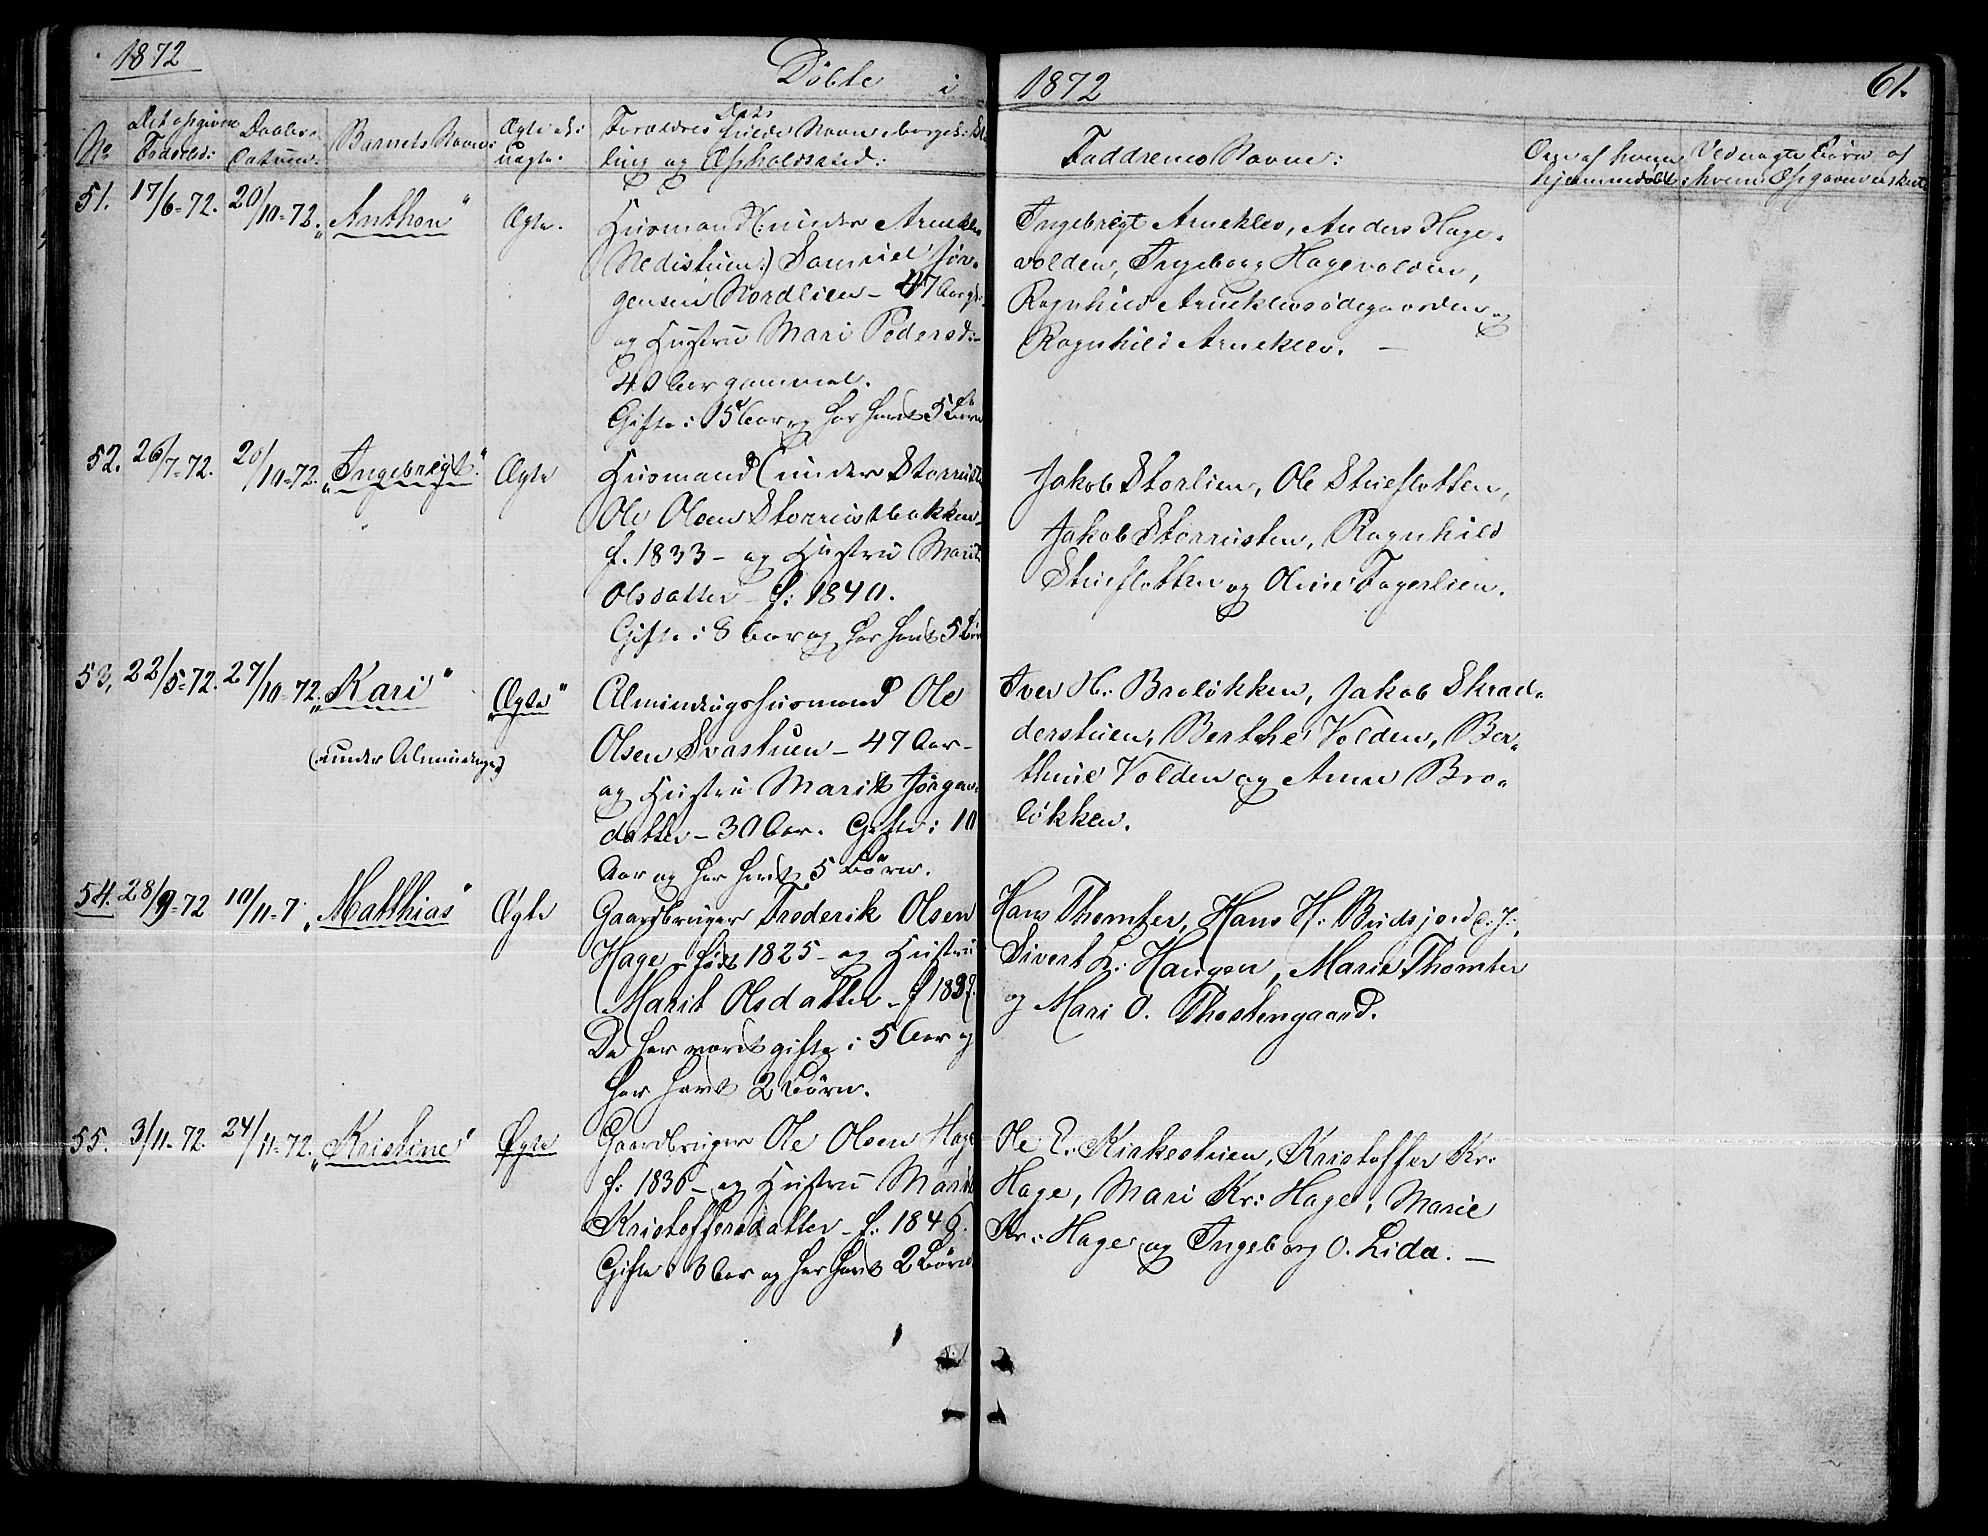 1872
Döbte i
1872
61.
No
Det opgivne
Fødselsd:
Daabs-
datum:
Barnets Navn:
Ægte el:
uægte.
Forældres fulde Navn, borgerl: Stil-
ling og Opholdssted:
Faddrenes Navne:
Om og af hvem
hjemmedöbt:
Ved uægte Børn af
hvem Opgaven er skeet
51. 17/6-72. 20/10-72. "Anthon" Ægte.
Husmand (: under Arneklev
Nedistuen:) Samuel Jör-
gensen Nordlien - 47 Aar gl. -
og Hustru Mari Pedersd: -
40 Aar gammel.
Gifte i 15 Aar og har havt 5 Børn
Ingebrigt Arneklev, Anders Hage-
volden, Ingeborg Hagevolden,
Ragnhild Arneklevsødegaarden og
Ragnhild Arneklev. -
52. 26/7-72. 20/10-72. "Ingebrigt." Ægte
Husmand (under Storrusten
Ole Olsen Storrustbakken -
f. 1833 - og Hustru Marit
Olsdatter - f: 1840.
Gifte i 8 Aar og har havt 5 Børn
Jakob Storlien, Ole Stueflotten,
Jakob Storrusten, Ragnhild
Stueflotten og Oline Fagerlien.
53. 22/5-72. 27/10-72. "Kari" "Ægte"
(under Almindingen)
Almindingshusmand Ole
Olsen Svastuen - 47 Aar -
og Hustru Marit Jörgens-
datter - 30 Aar. Gifte i 10
Aar og har havt 5 Børn.
Iver H: Brolökken, Jakob Skræd-
derstuen, Berthe Volden, Ber-
thine Volden og Anne Bro-
lökken.
54. 28/9-72 10/11-7 "Matthias" Ægte
Gaardbruger Frederik Olsen
Hage - født 1825 - og Hustru
Marit Olsdatter - f 1837.
De har været gifte i 5 Aar og
har havt 2 Børn.
Hans Thomter, Hans H: Budsjord d: y:,
Sivert L: Haugen, Marie Thomter
og Mari O. Thostengaard.
55. 3/11-72. 24/11-72. "Kristine" Ægte
Gaardbruger Ole Olsen Hage
f: 1836 - og Hustru Marit
Kristoffersdatter - f: 1846.
Gifte i 3 Aar og har havt 2 Børn
Ole E: Kirkestuen, Kristoffer Kr:
Hage, Mari Kr: Hage, Marie
Kr: Hage og Ingeborg O. Lida. -